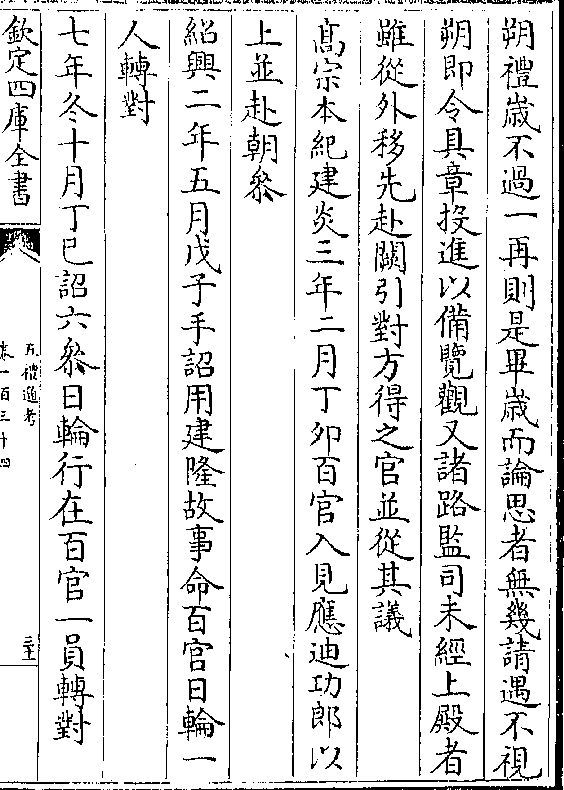 朔禮歲不過一再則是畢歲而論思者無幾請遇不視
朔即令具章投進以備覽觀又諸路監司未經上殿者
雖從外移先赴闕引對方得之官並從其議
髙宗本紀建炎三年二月丁夘百官入見應迪功郎以
上並赴朝叅
紹興二年五月戊子手詔用建隆故事命百官日輪一
人轉對
七年冬十月丁巳詔六叅日輪行在百官一員轉對
欽定四庫全書
五禮通考
卷一百三十四